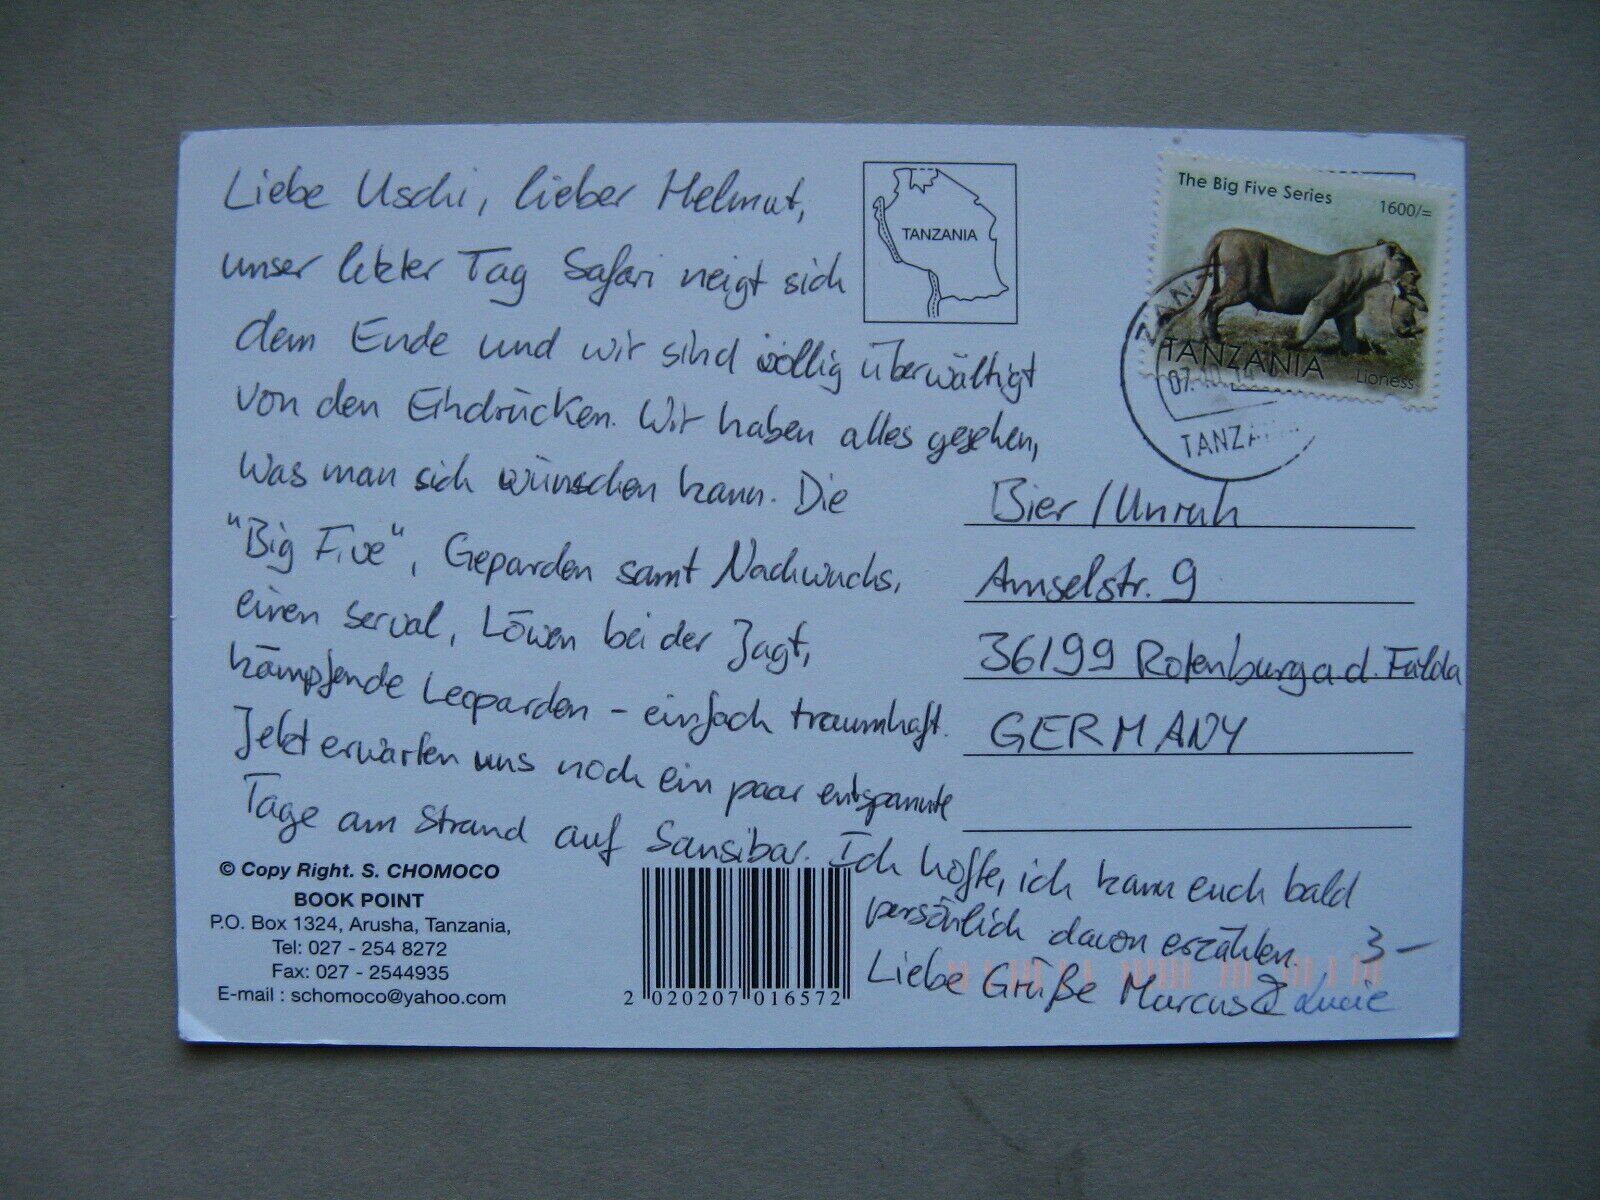 Liebe Uschi, lieber Helmut,
unser letzter Tag Safari neigt sich
dem Ende und wir sind völlig überwältigt
von den Eindrücken. Wir haben alles gesehen,
was man sich wünschen kann. Die
"Big Five", Geparden samt Nachwuchs,
einen Serval, Löwen bei der Jagt,
kämpfende Leoparden - einfach traumhaft.
Jetzt erwarten uns noch ein paar entspannte
Tage am Strand auf Sansibar. Ich hoffe, ich kann euch bald
persönlich davon erzählen.
Liebe Grüße Marcus & Lucie
3-
TANZANIA
The Big Five Series
1600/=
TANZANIA
Lioness
07.10.
Bier / Unruh
Amselstr. 9
36199 Rotenburg a.d. Fulda
GERMANY
© Copy Right. S. CHOMOCO
BOOK POINT
P.O. Box 1324, Arusha, Tanzania,
Tel: 027 - 254 8272
Fax: 027 - 2544935
E-mail : schomoco@yahoo.com
2 020207 016572